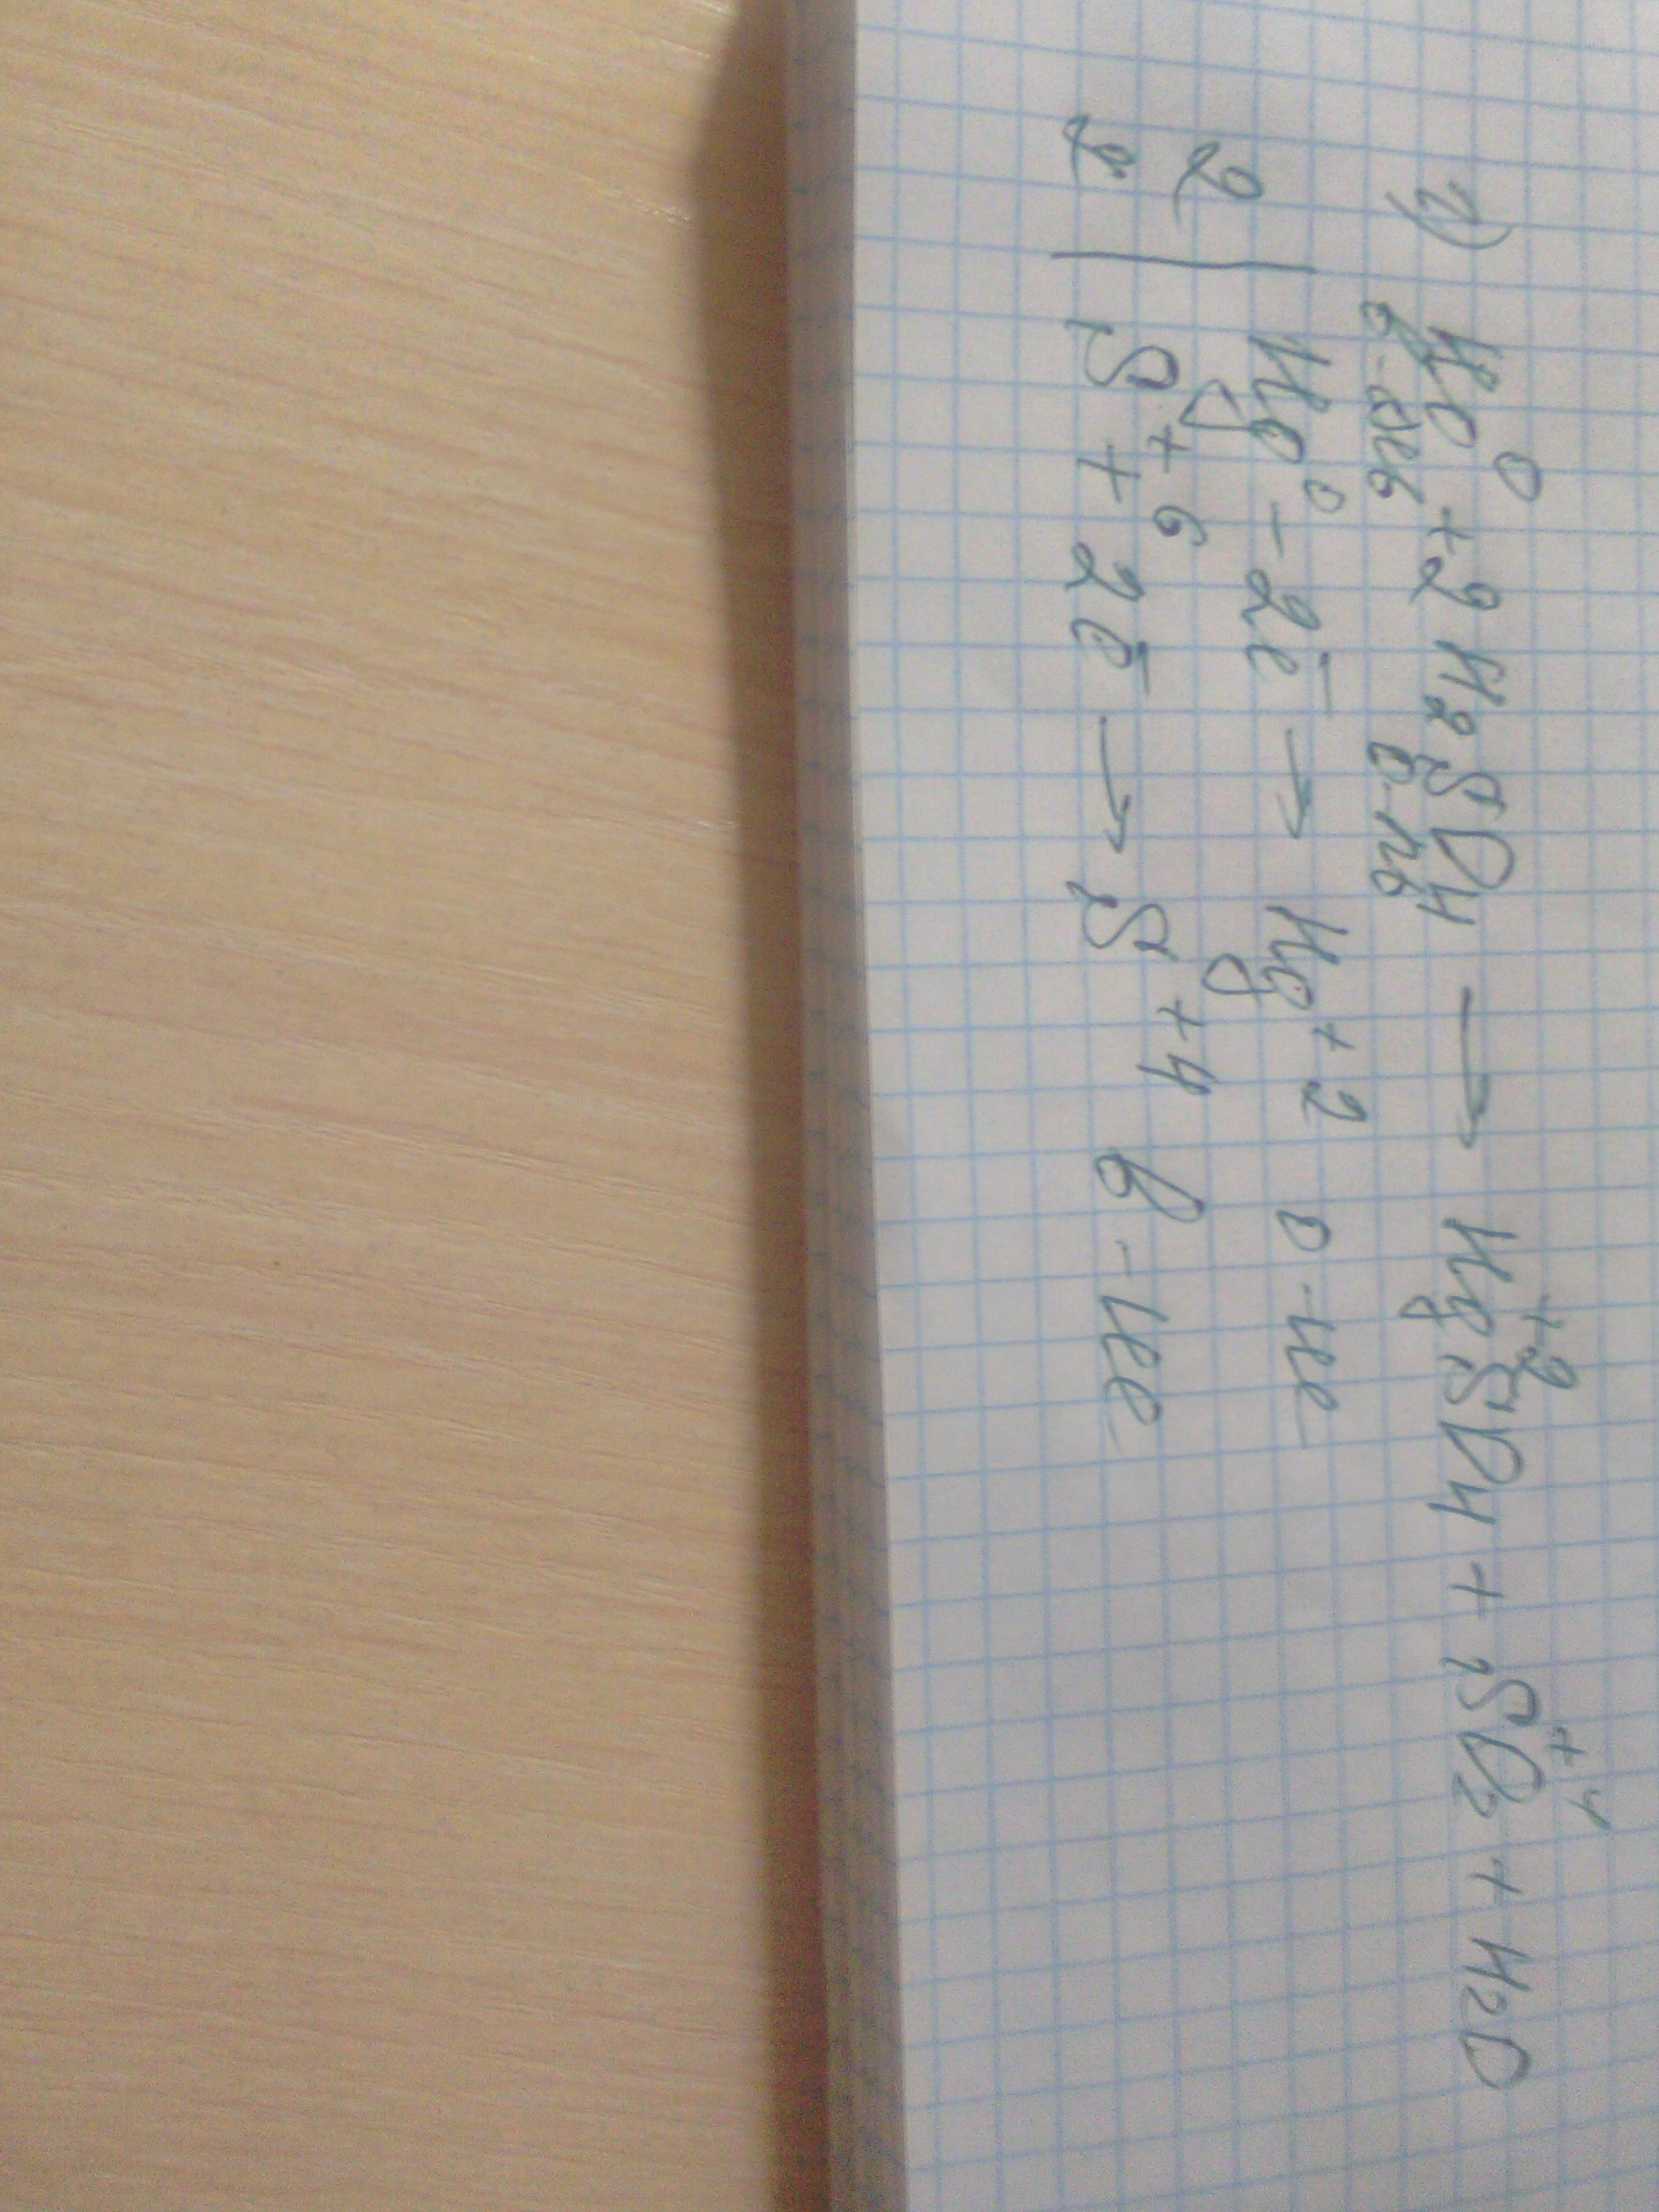 1) Hg⁰ + 2H₂SO₄ → Hg⁺²SO₄ + S⁺⁴O₂ + H₂O
в-ль о-ль
2 | Hg⁰ - 2ē → Hg⁺² о-ие
2 | S⁺⁶ + 2ē → S⁺⁴ в-ие